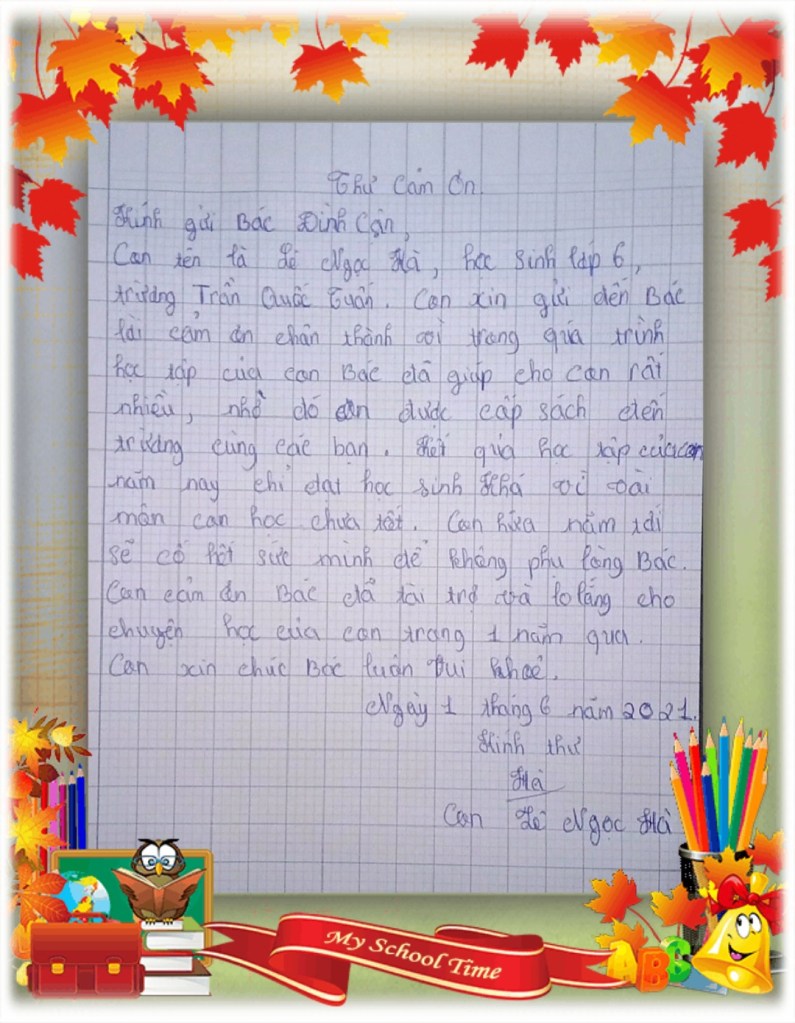 Thư Cảm Ơn
Kính gửi Bác Đình Cận,
Con tên là Lê Ngọc Hà, học sinh lớp 6,
trường Trần Quốc Tuấn. Con xin gửi đến Bác
lời cảm ơn chân thành vì trong quá trình
học tập của con Bác đã giúp cho con rất
nhiều, nhờ đó con được cấp sách đến
trường cùng các bạn. Kết quả học tập của con
năm nay chỉ đạt học sinh Khá vì vài
môn con học chưa tốt. Con hứa năm tới
sẽ cố hết sức mình để không phụ lòng Bác.
Con cảm ơn Bác đã tài trợ và lo lắng cho
chuyện học của con trong 1 năm qua.
Con xin chúc Bác luôn vui khoẻ.
Ngày 1 tháng 6 năm 2021.
Kính thư
Hà
Con Lê Ngọc Hà
My School Time
ABC